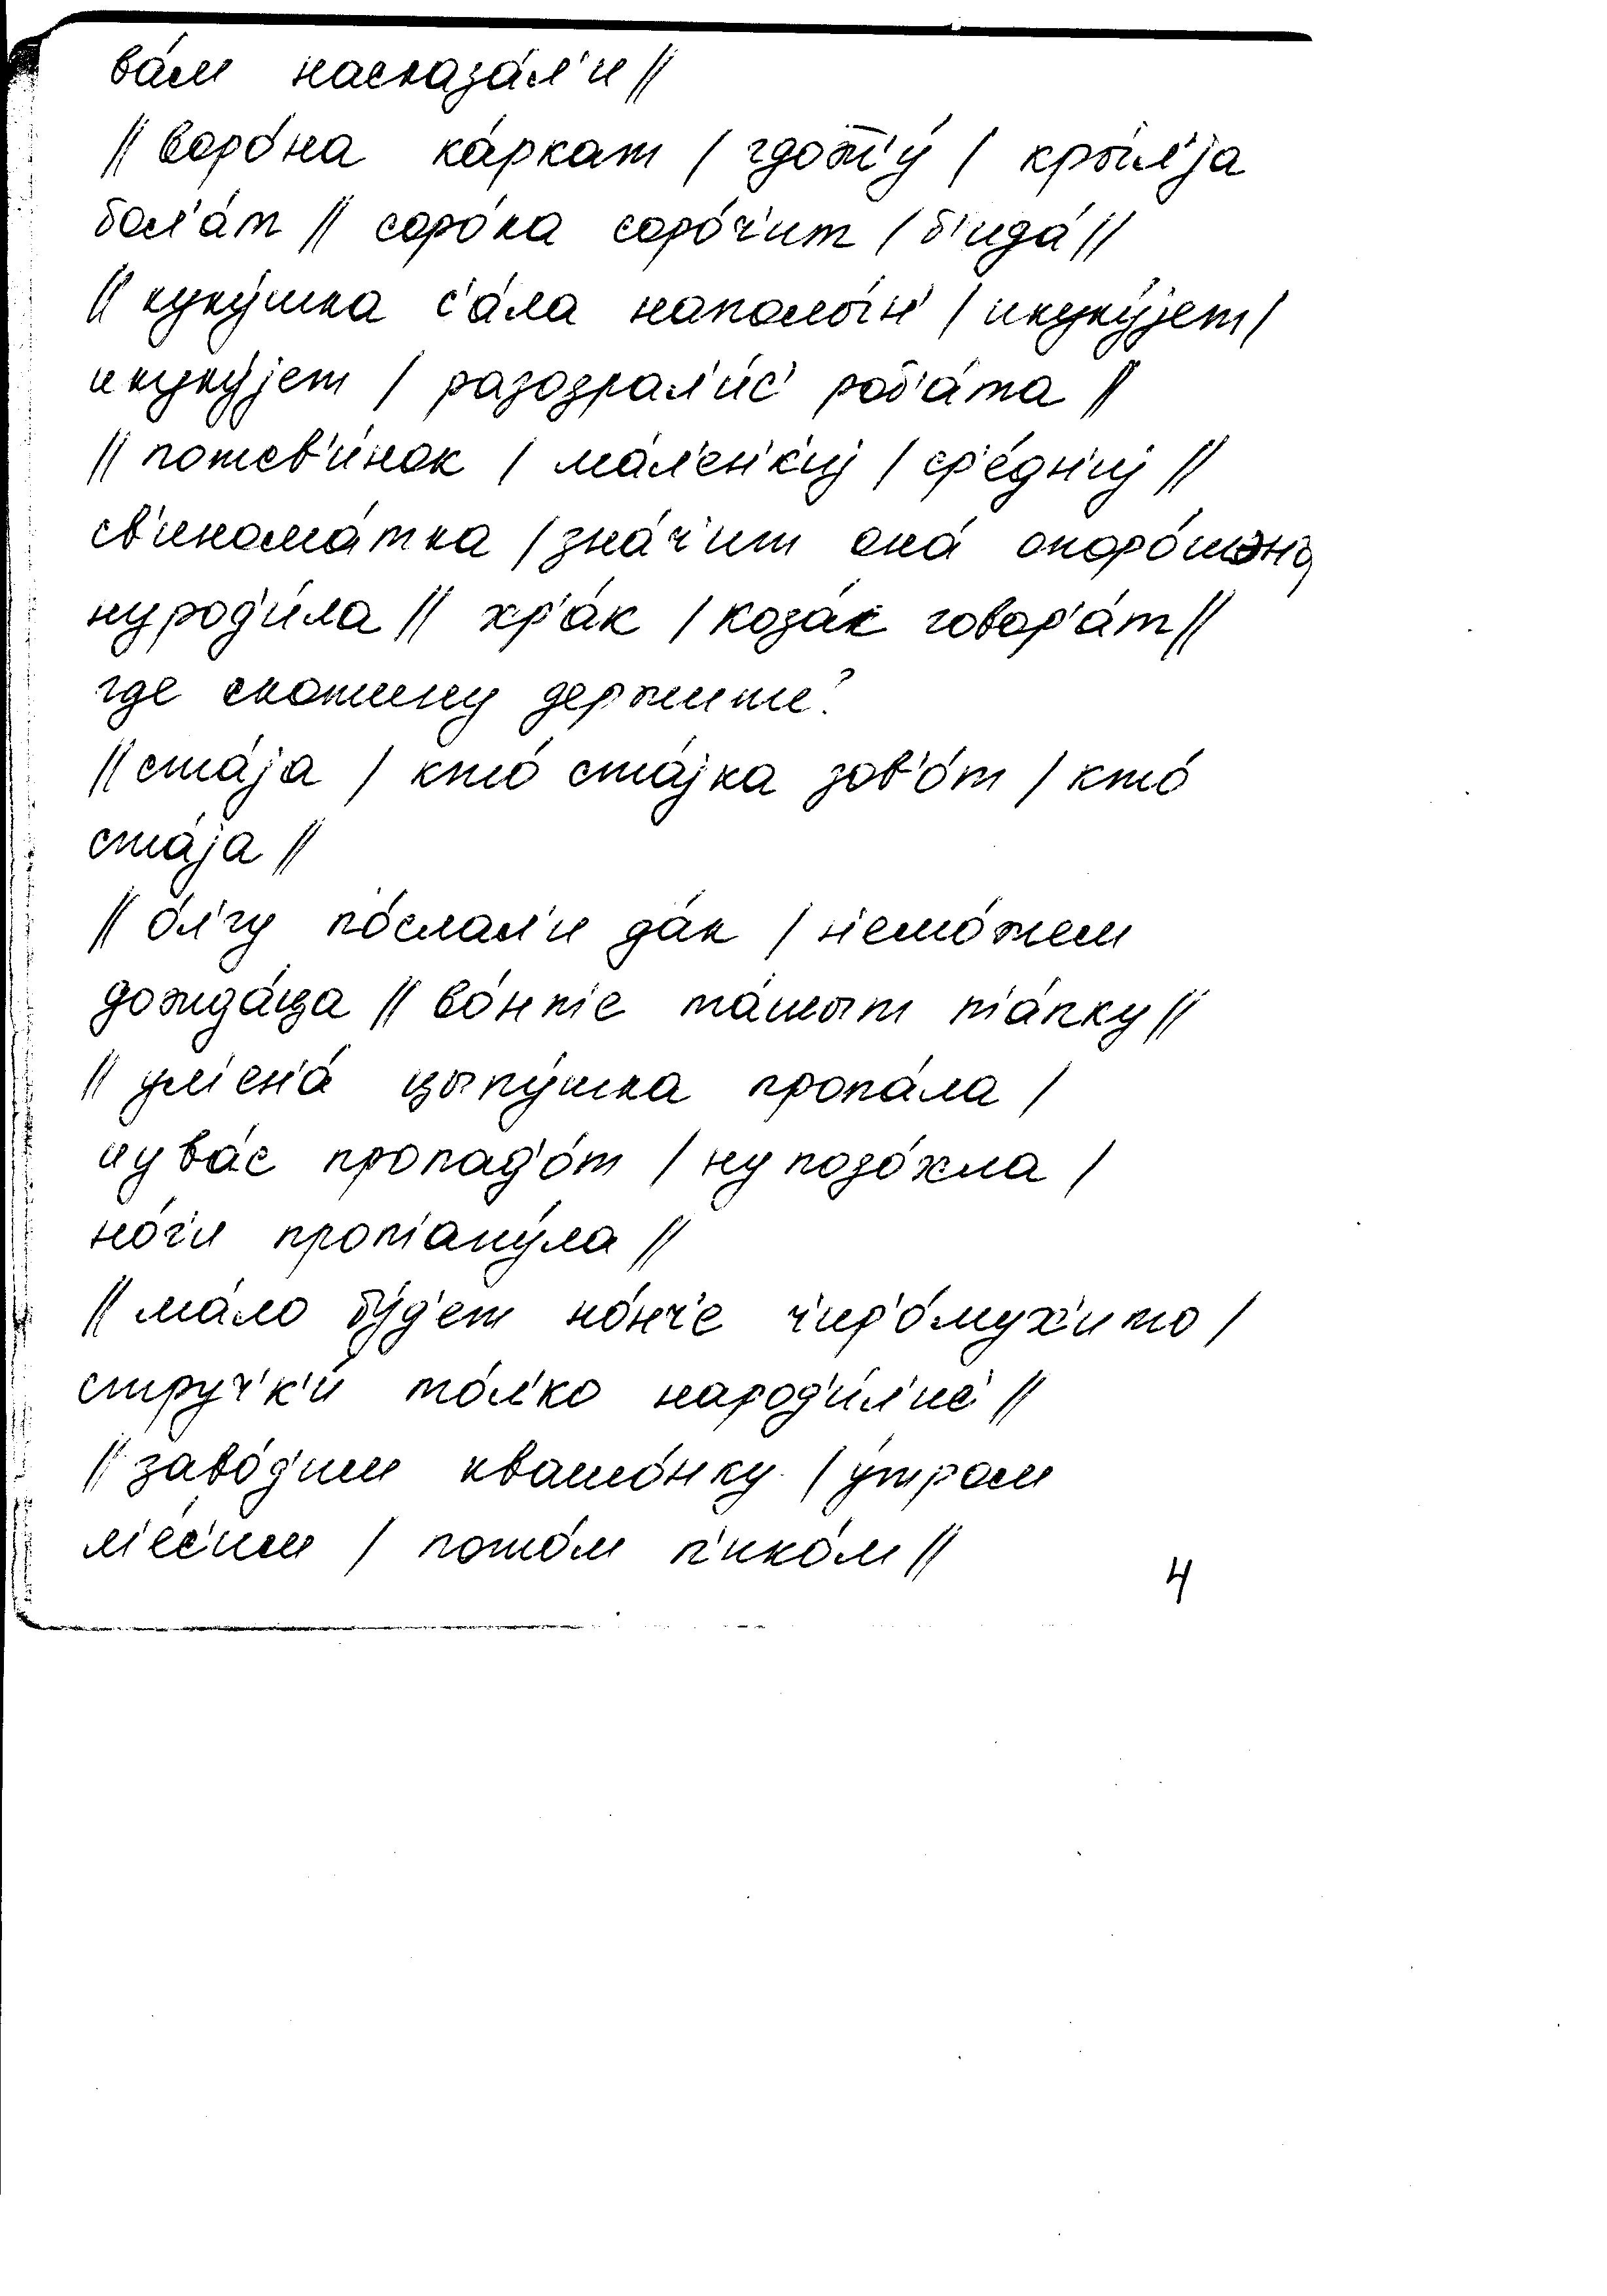 ва́м насказа́л'и //
// воро́на ка́ркат / гдож̅'у́ / кры́л'jа
бол'а́т // соро́ка соро́ч'ит / б'ида́ //
// куку́шка с'а́ла наполы́н' / икуку́jет /
икуку́jет / разозрал'и́с' роб'а́та //
// потсв'и́нок / ма́л'ен'к'иj / ср'е́дн'иj //
св'инома́тка / зна́ч'ит она́ опоро́шэна
нурод'и́ла // хр'а́к / коза́к говор'а́т //
где скотину держите?
// ста́jа / кто́ ста́jка зов'о́т / кто́
ста́jа //
// о́л'гу по́слал'и да́к / н'емо́жем
дожда́ца // во́нт'е та́шшыт т'а́пку //
// ум'ен'а́ цыпу́шка пропа́ла /
иува́с пропад'о́т / ну подо́хла /
но́г'и прот'ану́ла //
// ма́ло бу́д'ет но́нч'е ч'ир'о́мух'ито /
струч'к'и́ то́л'ко народ'и́л'ис' //
// заво́д'им квашо́нку / у́тром
м'е́с'им / пото́м п'ико́м //
4